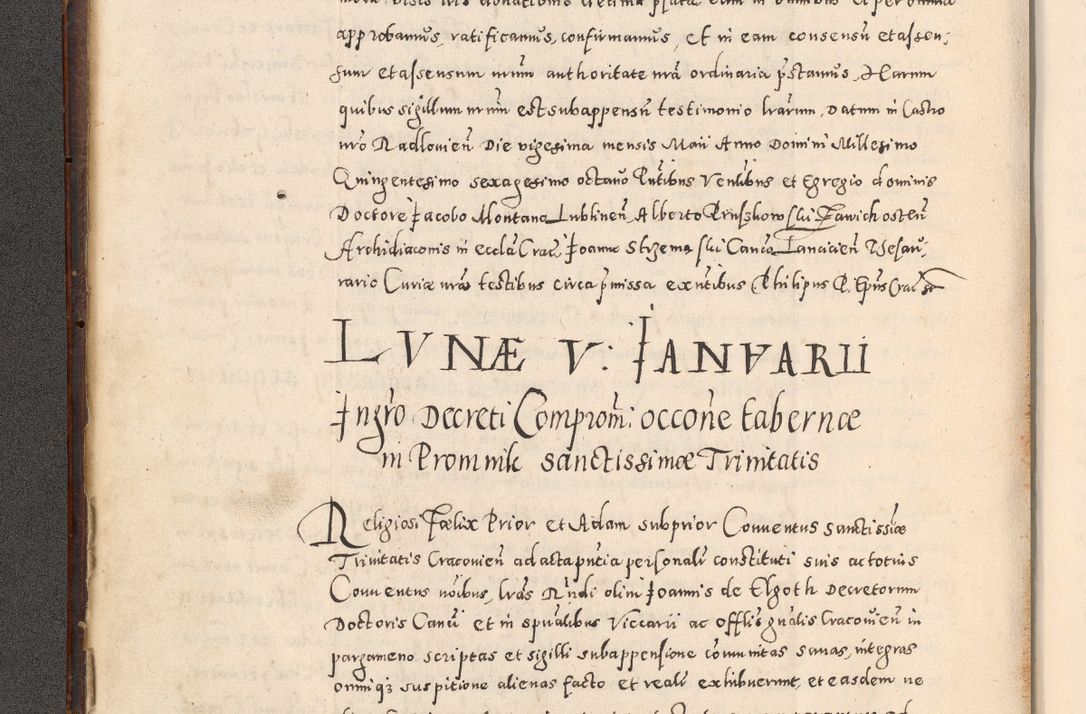 approbamus, ratificamus, confirmamus, et in eam consensū et assen:
sum et assensum nrūm authoritate nrā ordinaria pstamus, Harum
quibus sigillum nrūm est subappensū testimonio lrarum, Datum in Castro
nrō Radlovien̄ Die vigesima mensis Maii Anno Domini Millesimo
Quingentesimo sexagesimo octavo Pntibus Ventibus et Egregio dominis
Doctore Jacobo Montano Lublinen̄ Alberto Zavichosten̄
Archidiaconis in eccla Crac: Joanne Strzemp ski Canco Lancicien̄ Thesau:
rario Curiæ nrae testibus circa pmissa existibus Philipus P. Epus Crac sst
LVNÆ V: JANVARII
Ingro Decreti Comprom: occone tabernæ
in Promnik sanctissimæ Trinitatis
Religiosi Fœlix Prior et Adam subprior Conventus sanctissiæ
Trinitatis Cracovien̄ ad acta pntia personalr constituti suis ac totius
Conventus noibus, lras Rndi olim Joannis de Elgoth Decretorum
Doctoris Canci et in spualibus Viccarii ac offlis gnalis Cracovien̄ in
pargameno scriptas et sigilli subappensione comunitas sanas, integras
omniq; suspitione alienas facto et realr exhibuerunt, et easdem ve